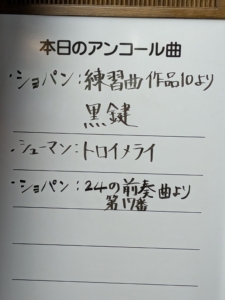 本日のアンコール曲
・ショパン：練習曲作品10より
黒鍵
・シューマン：トロイメライ
・ショパン：24の前奏曲より
第17番